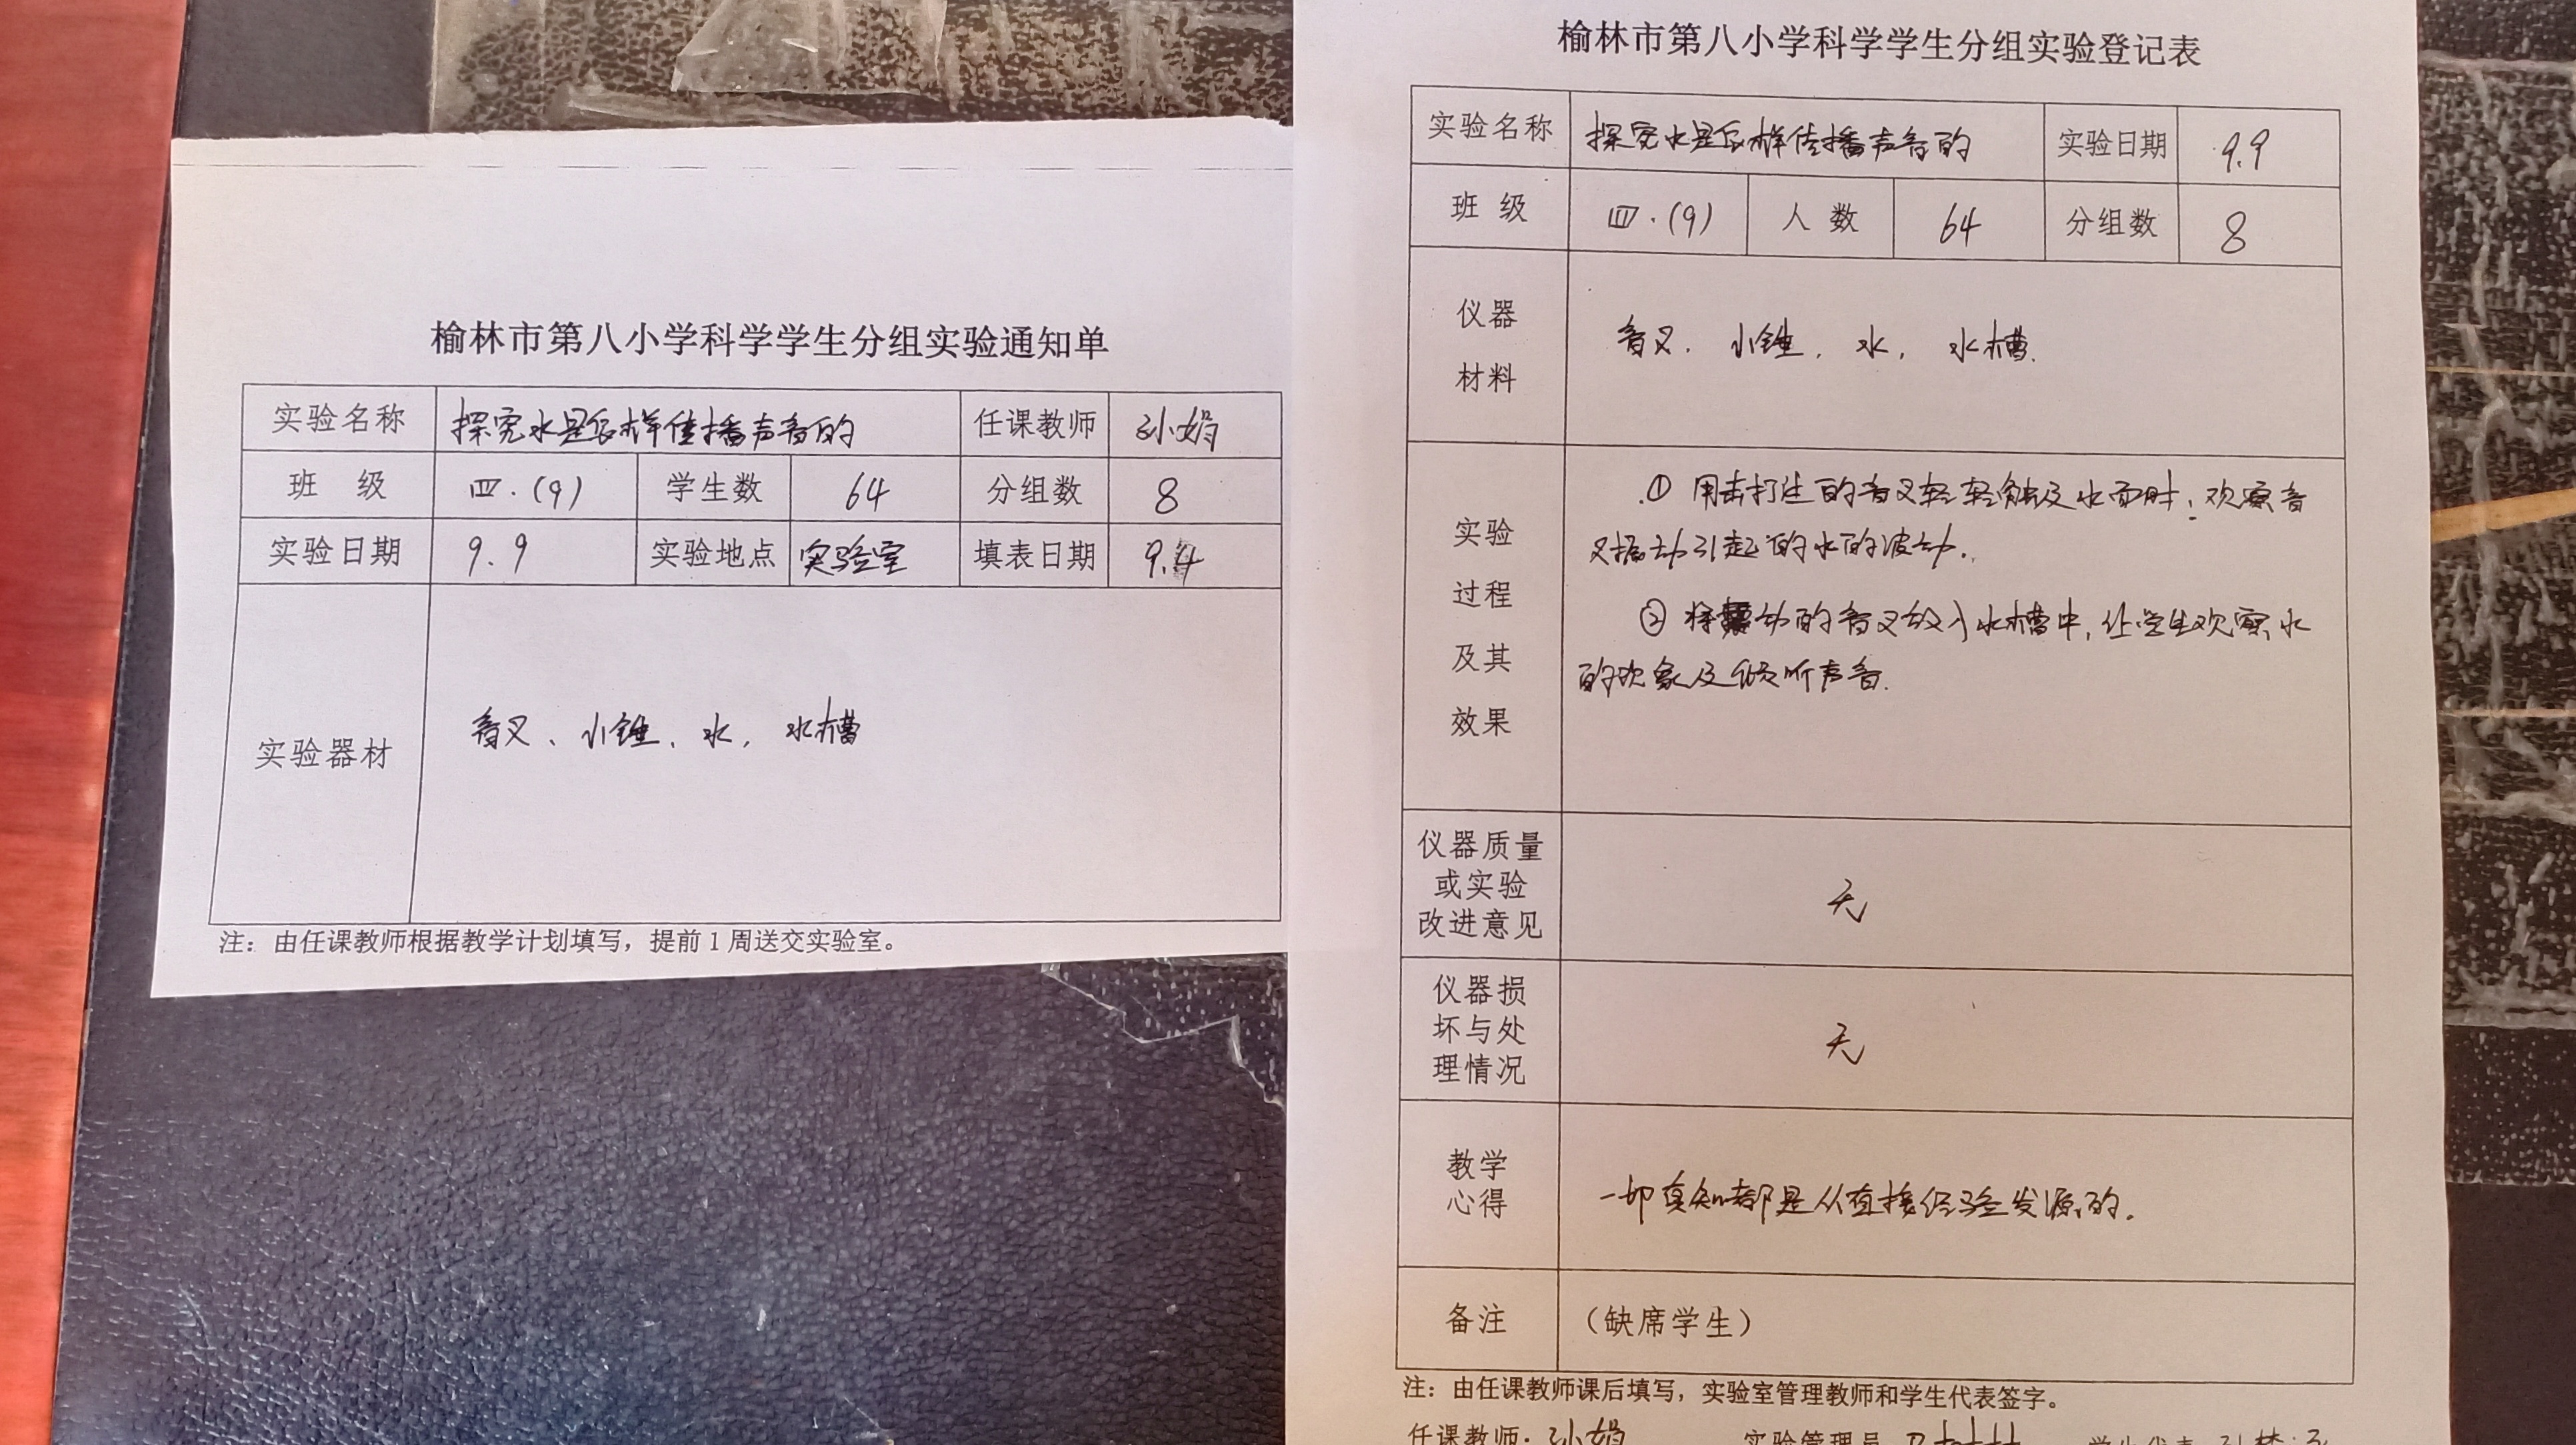 榆林市第八小学科学学生分组实验通知单
实验名称 探究水是怎样传播声音的 任课教师 孙娟
班 级 四.(9) 学生数 64 分组数 8
实验日期 9.9 实验地点 实验室 填表日期 9.4
实验器材 音叉、小锤、水, 水槽
注：由任课教师根据教学计划填写，提前1周送交实验室。
榆林市第八小学科学学生分组实验登记表
实验名称 探究水是怎样传播声音的 实验日期 9.9
班 级 四.(9) 人 数 64 分组数 8
仪器
材料
音叉、小锤、水, 水槽.
实验
过程
及其
效果
① 用击打过的音叉轻轻触及水面时, 观察音
叉振动引起的水的波动.
② 将 动的音叉放入水槽中, 让学生观察水
的现象及倾听声音.
仪器质量
或实验
改进意见
无
仪器损
坏与处
理情况
无
教学
心得
一切真知都是从直接经验发源的.
备注 （缺席学生）
注：由任课教师课后填写，实验室管理教师和学生代表签字。
任课教师：孙娟 实验管理员 学生代表